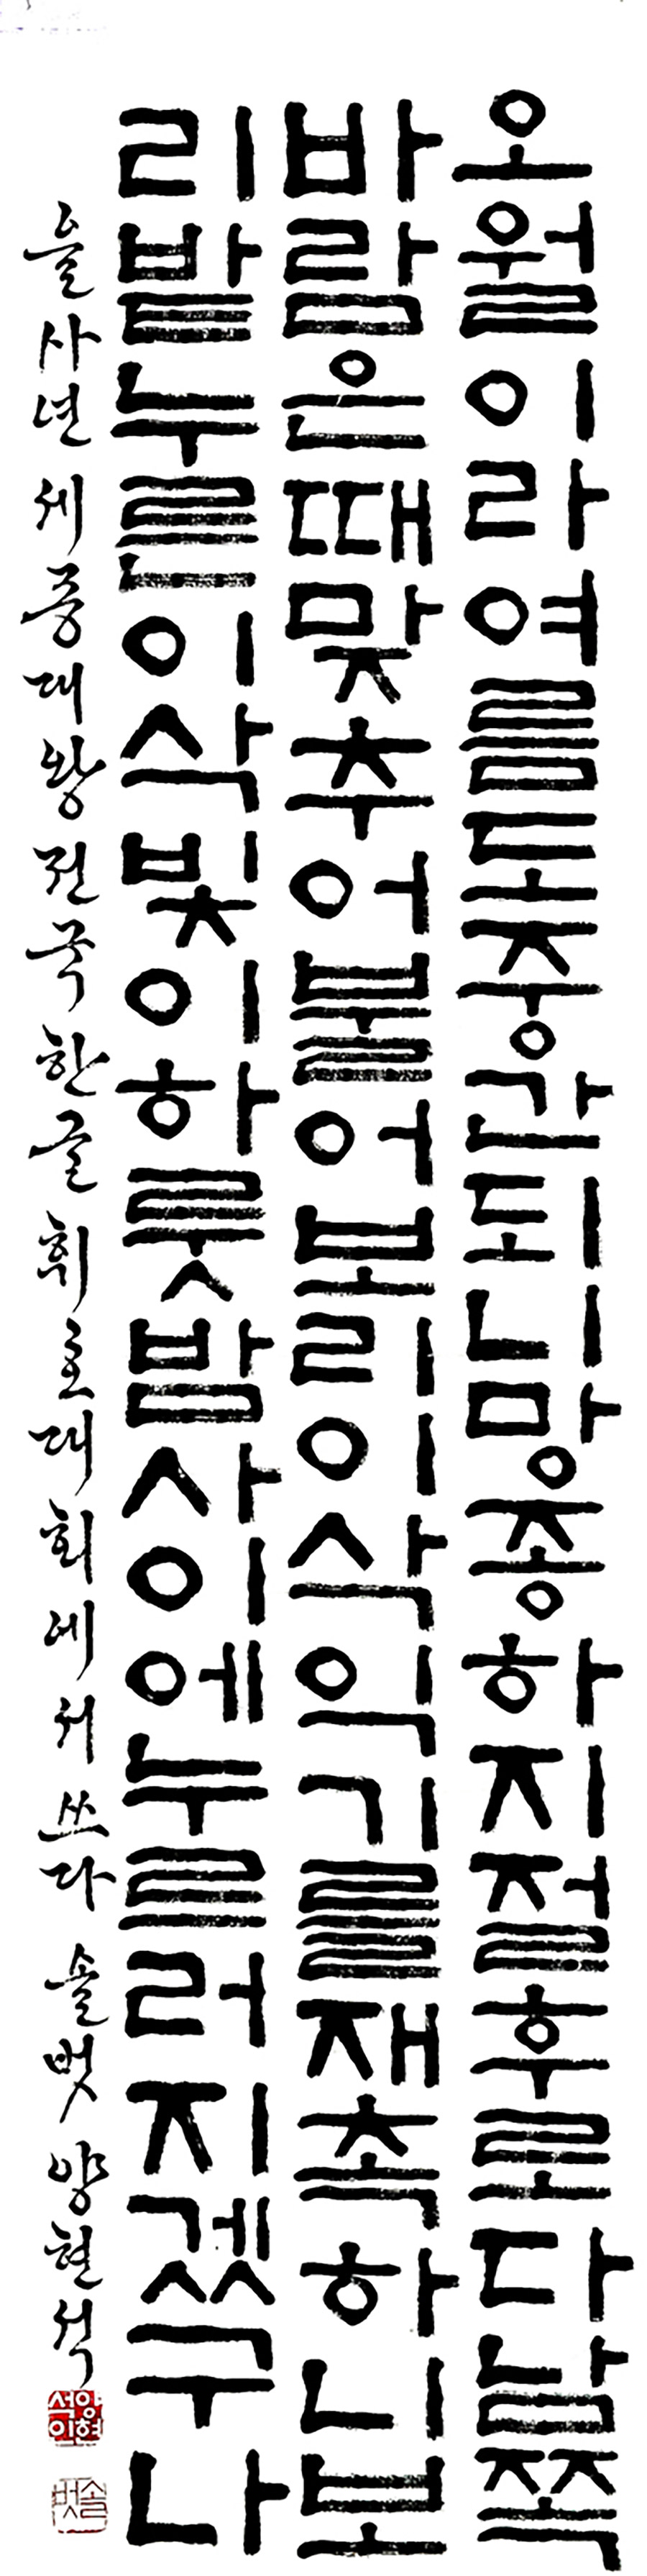 오월이라여름도중간되니망종하지절후로다남쪽
바람은때맞추어불어보리이삭익기를재촉하니보
리밭누른이삭빛이하룻밤사이에누르러지겠구나
을사년 세종대왕 전국 한글 휘호대회에서 쓰다 솔벗 양현석
양현석인
솔벗